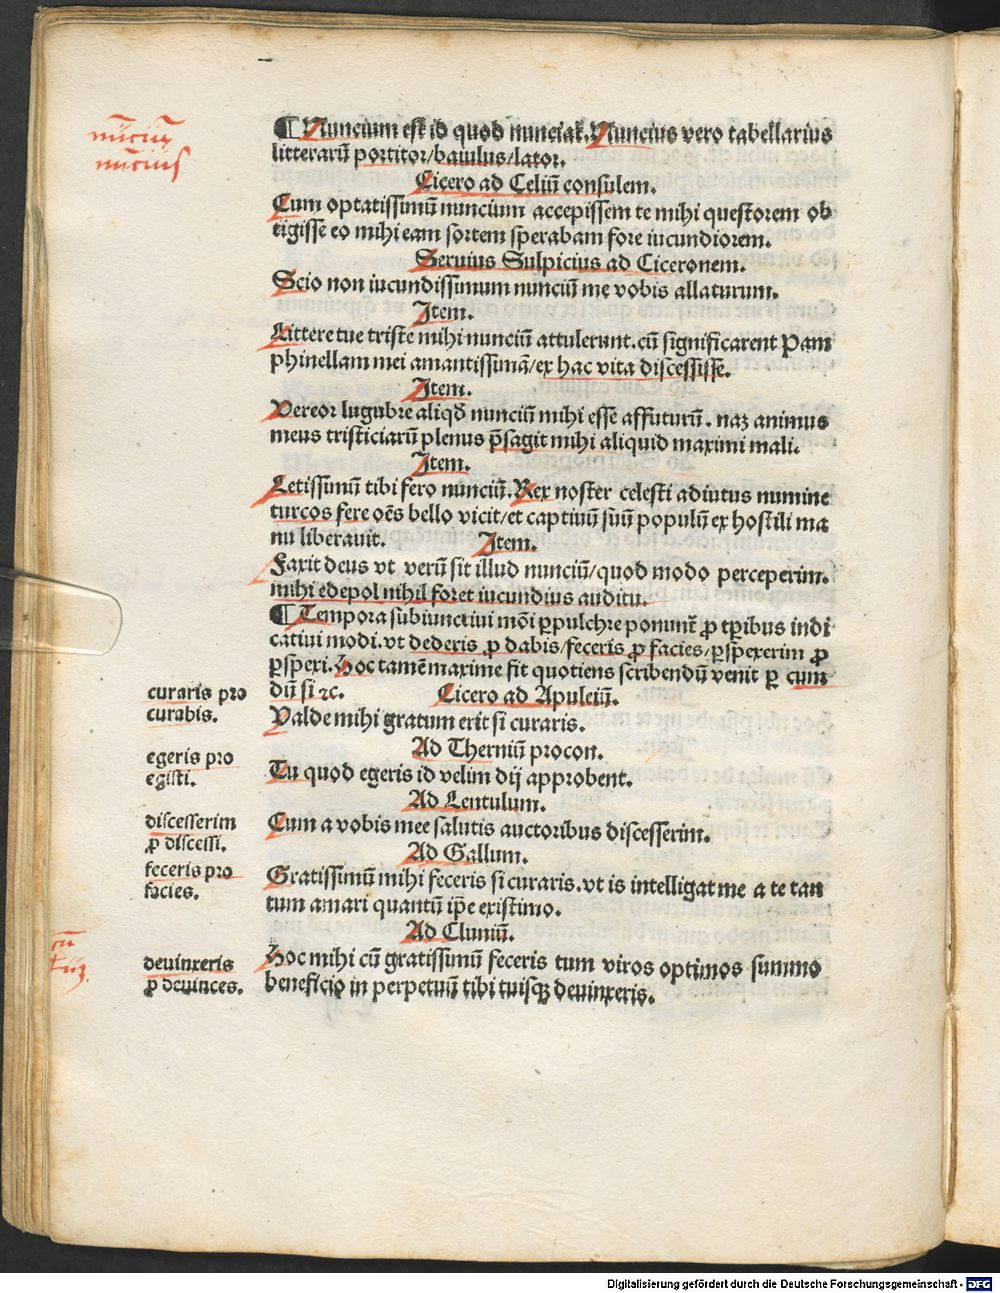 nūciū
nūcius
¶ Nuncium est id quod nunciat. Nuncius vero tabellarius
litterarū portitor/baiulus/lator.
Cicero ad Celiū consulem.
Cum optatissimū nuncium accepissem te mihi questorem ob
tigisse eo mihi eam sortem sperabam fore iucundiorem.
Seruius Sulpicius ad Ciceronem.
Scio non iucundissimum nunciū me vobis allaturum.
Item.
Littere tue triste mihi nunciū attulerunt. cū significarent Pam
phinellam mei amantissimā/ex hac vita discessisse.
Item.
Vereor lugubre aliqd̄ nunciū mihi esse affuturū. naꝫ animus
meus tristiciarū plenus p̄sagit mihi aliquid maximi mali.
Item.
Letissimū tibi fero nunciū. Rex noster celesti adiutus numine
turcos fere oēs bello vicit/et captiuū suū populū ex hostili ma
nu liberauit. Item.
Faxit deus vt verū sit illud nunciū/quod modo perceperim.
mihi edepol nihil foret iucundius auditu.
¶ Tempora subiunctiui mōi ꝑpulchre ponunt̄ ꝓ tꝑibus indi
catiui modi. vt dederis ꝓ dabis/feceris ꝓ facies/ꝑspexerim ꝓ
ꝑspexi. Hoc tamē maxime fit quotiens scribendū venit ꝑ cum
dū si ⁊c. Cicero ad Apuleiū.
curaris pro
curabis.
Valde mihi gratum erit si curaris.
Ad Therniū procon.
egeris pro
egisti.
Tu quod egeris id velim dij approbent.
Ad Lentulum.
discesserim
ꝓ discessi.
Cum a vobis mee salutis auctoribus discesserim.
Ad Gallum.
feceris pro
facies.
Gratissimū mihi feceris si curaris. vt is intelligat me a te tan
tum amari quantū ip̄e existimo.
Ad Cluniū.
cū
tū
deuinxeris
ꝓ deuinces.
Hoc mihi cū gratissimū feceris tum viros optimos summo
beneficio in perpetuū tibi tuisqꝫ deuinxeris.
Digitalisierung gefördert durch die Deutsche Forschungsgemeinschaft - DFG